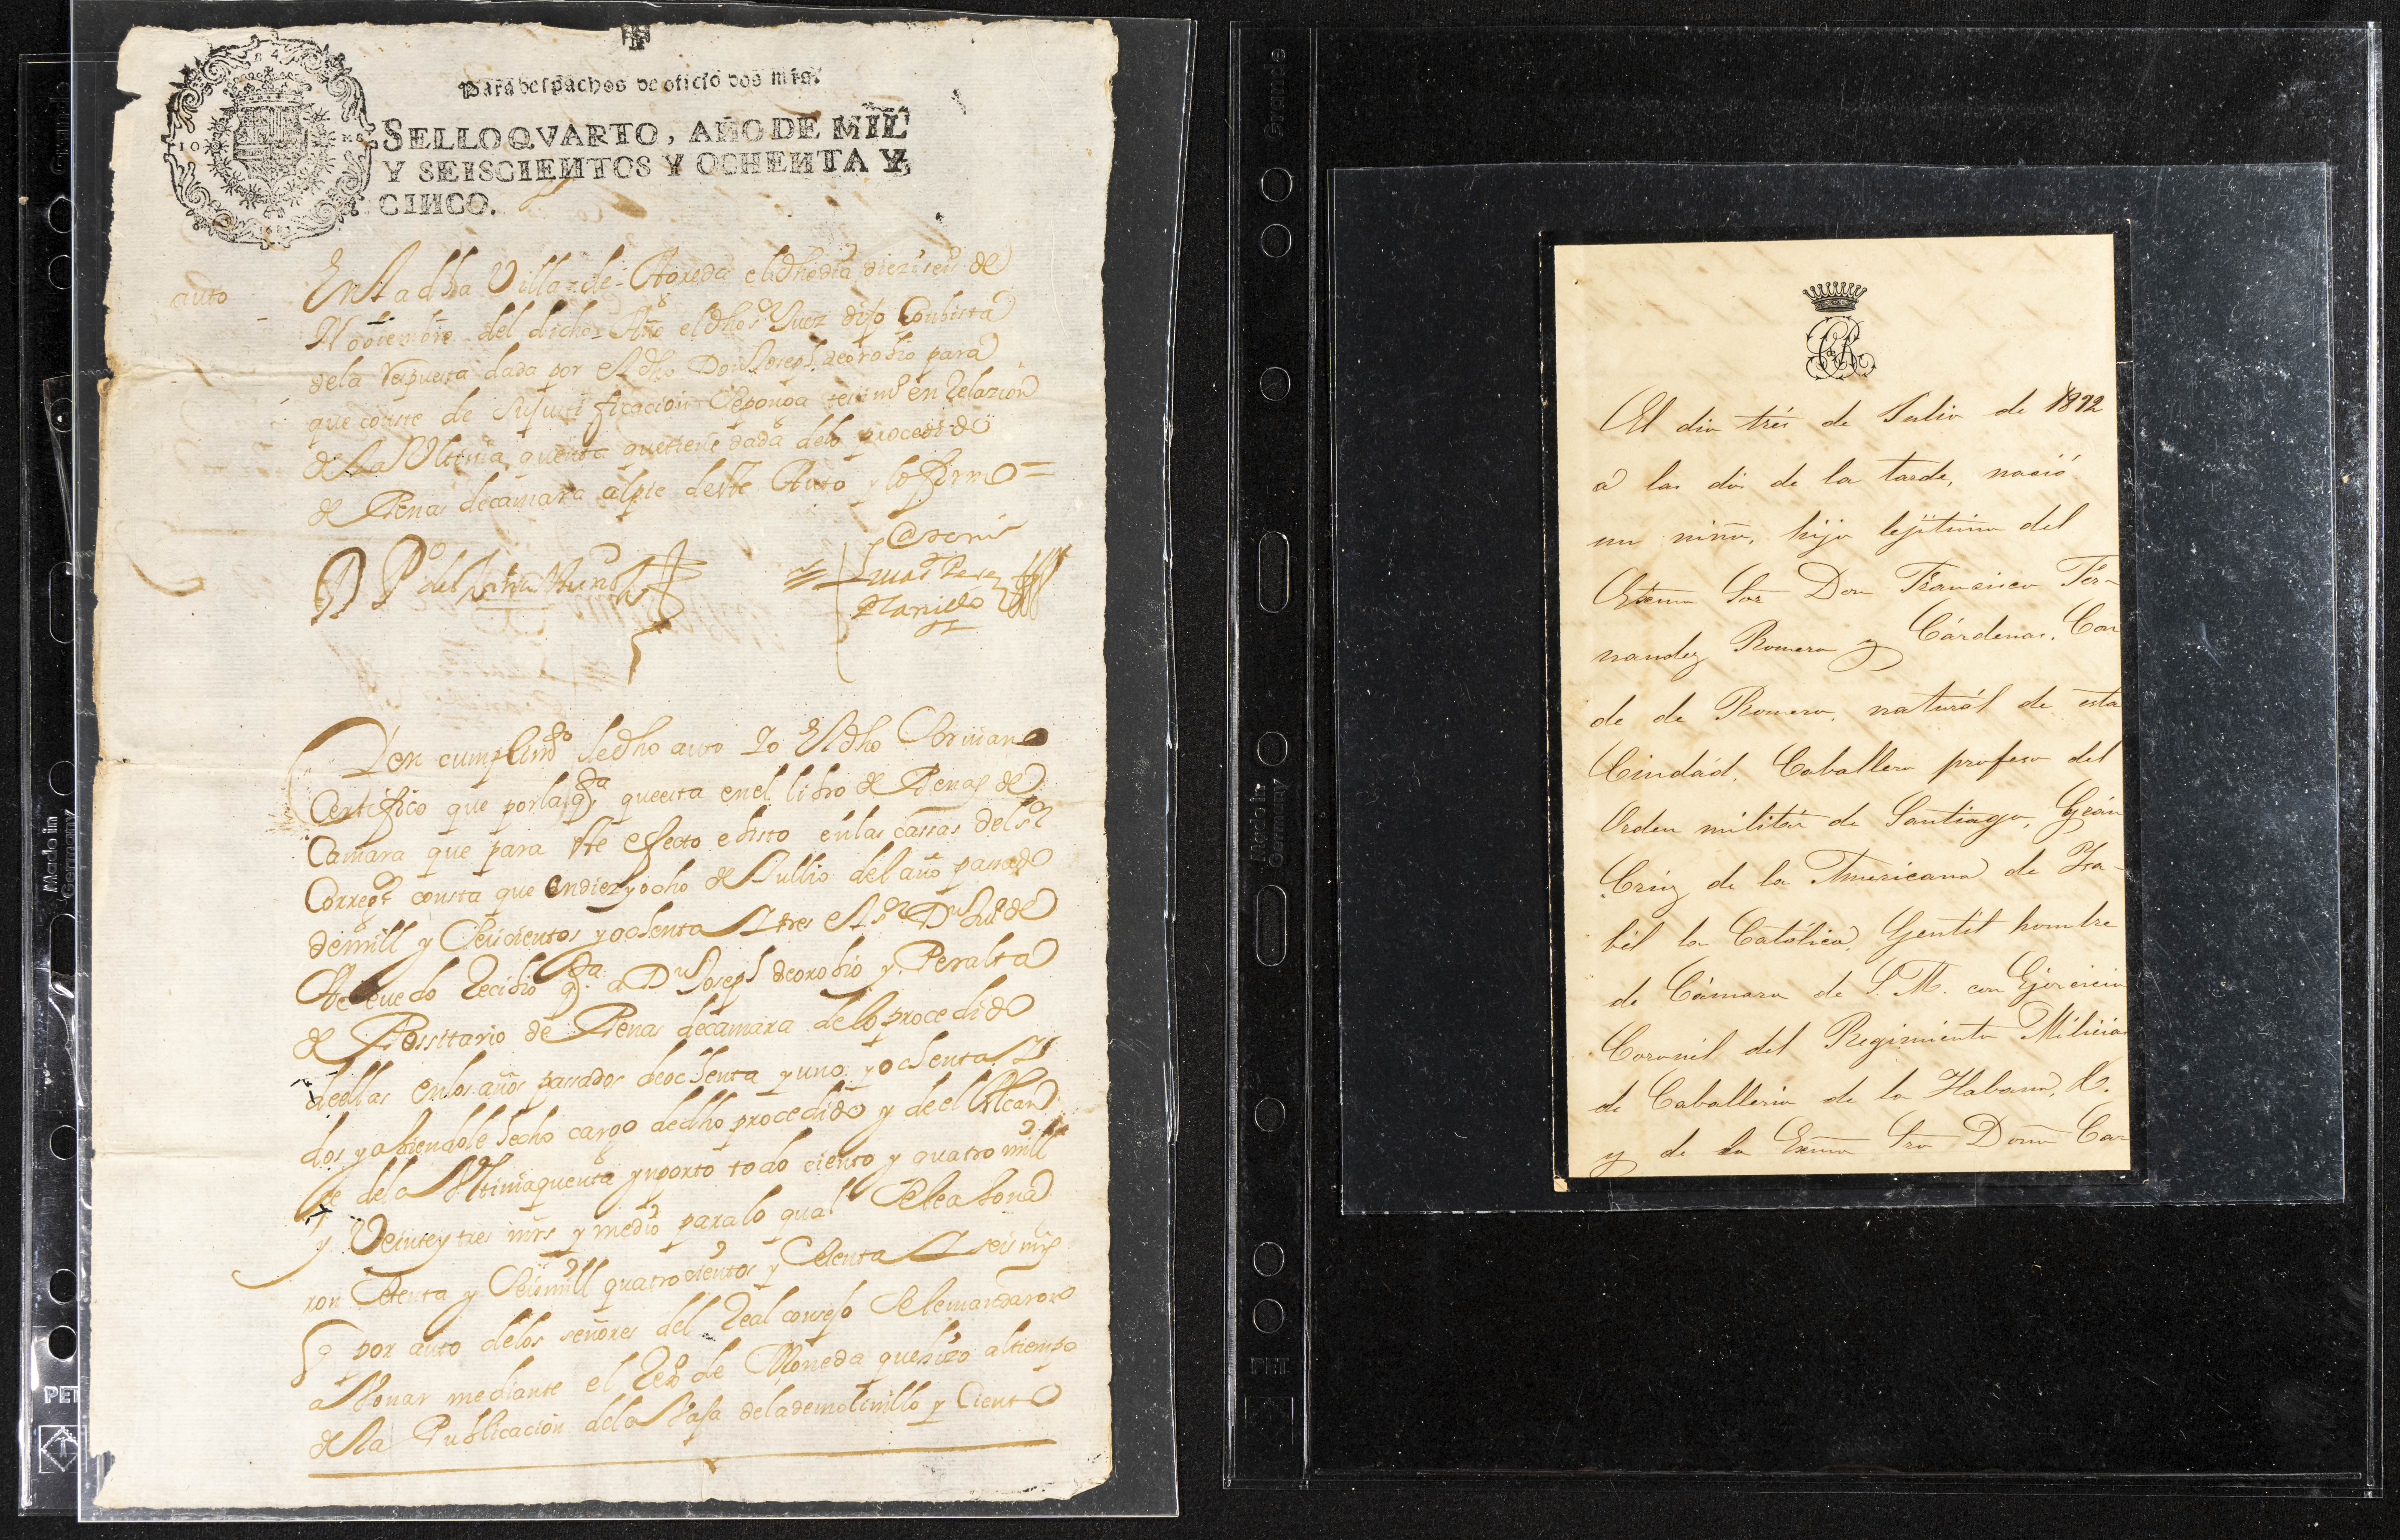 Para despachos de oficio dos mrs.
SELLO QVARTO, AÑO DE MIL
Y SEISCIENTOS Y OCHENTA Y
CINCO.
auto
En la dha Villa de Agreda el dho dia diez y seis de
Noviembre del dicho Año el dho sr Juez dijo Con bista
de la Respuesta dada por el dho Don Joseph de orobio para
que conste de su justificacion Se ponga testimo en Relazion
de la Ultima quenta que tiene dada de lo procedido
de Penas de camara al pie deste Auto y lo firmo =
Ante mi
Lucas Perez
Planillo
En cumplimto de dho auto Yo El dho Escrivano
Certifico que por la qta que esta en el libro de Penas de
Camara que para este efecto e bisto en las cassas del sr
Corregor consta que en diez y ocho de Jullio del año passado
de mill y Seiscientos y ochenta y tres el sr Dn Juo de
Azevedo Recibio qta a Dn Joseph de orobio y Peralta
de Possitario de Penas de camara de lo procedido
de ellas en los años passados de ochenta y uno y ochenta y
dos y abiendole hecho cargo de dho procedido y de el Alcan
ze de la Ultima quenta ymporto todo ciento y quatro mill
y Veinte y tres mrs y medio para lo qual Se le abona
ron Setenta y Seis mill quatrocientos y Setenta y seis mrs
q por auto de los señores del Real consejo Se le mandaron
abonar mediante el Rexo de Moneda que hizo al tiempo
de la Publicacion de la Vaja de la de molinillo y Ciento
El dia tres de Julio de 1892
a las dos de la tarde, nació
un niño, hijo lejitimo del
Exmo Sor Don Francisco Fer-
nandez Romero y Cárdenas, Con
de de Romero, naturál de esta
Ciudád, Caballero profeso del
Orden militár de Santiago, Grán
Crúz de la Americana de Ysa-
bél la Católica, Gentil hombre
de Cámara de S. M. con Ejercicio
Coronél del Regimiento Milicias
de Caballeria de la Habana, &.
y de la Exma Sra Doña Car
Made in
Germany
PET
Grande
Made in
Germany
PET